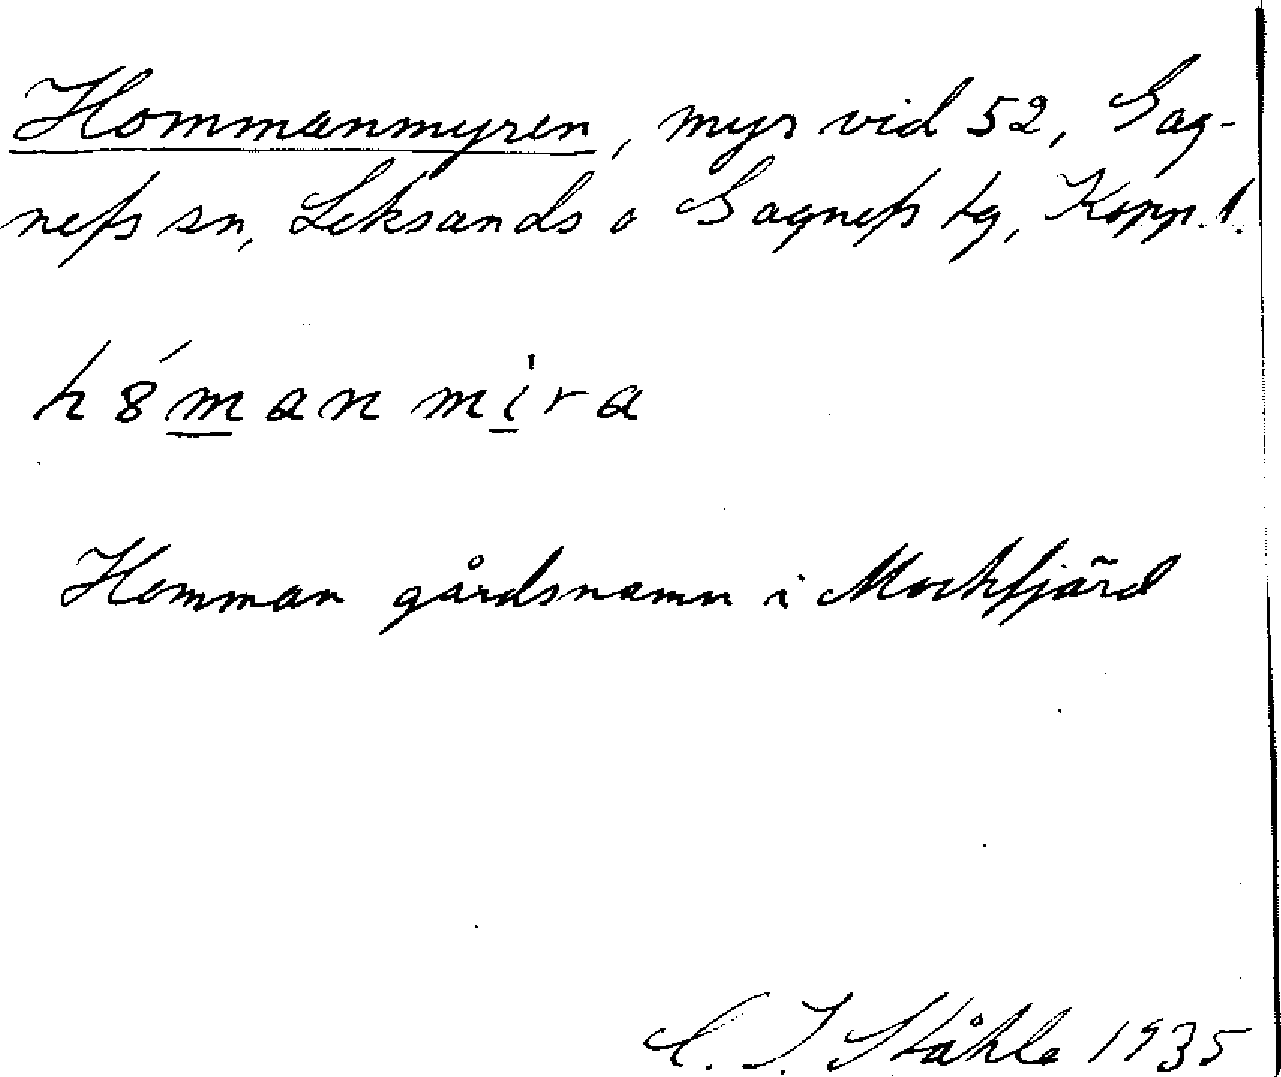 Hommanmyren, myr vid 52, Gag-
nefs sn, Leksands o Gagnefs tg, Kopp. l.
h8́manmịra
Homman gårdsnamn i Mockfjärd
C. I. Ståhle 1935